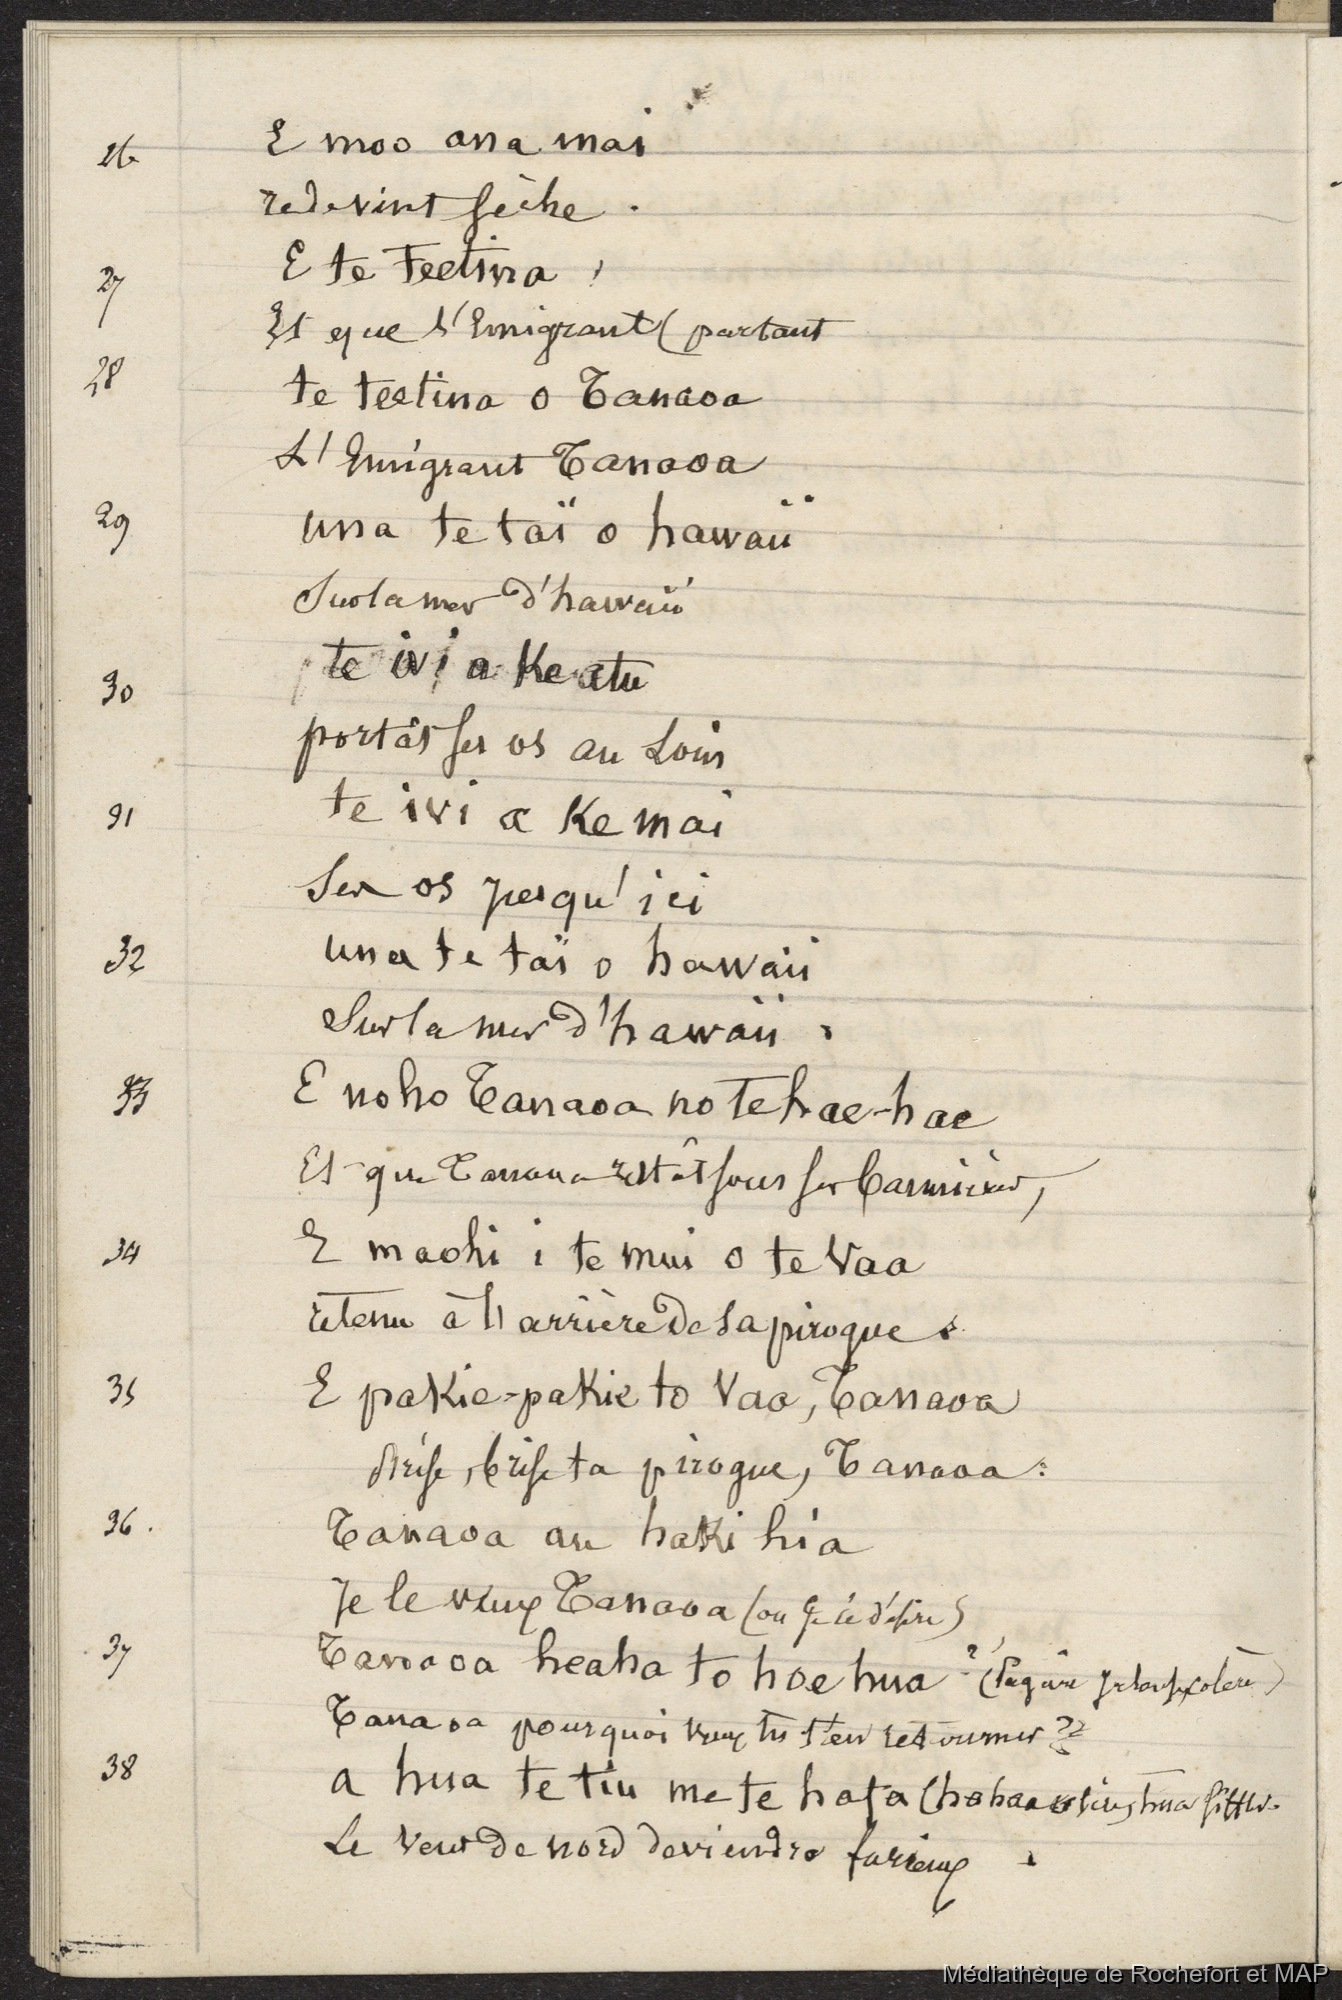 26 E moo ana mai
redevint sèche.
27 E te teetina,
Et que l'Emigrant (partant
28 te teetina o Tanaoa
L'Emigrant Tanaoa
29 una te taï o hawaii
Sur la mer d'hawaii
30 te ivi a Ke atu
portât ses os au Loin
31 te ivi a Ke mai
Ses os jusqu'ici
32 una te taï o hawaii
Sur la mer d'hawaii.
33 E noho Tanaoa no te hae-hae
Et que Tanaoa restât sous ses bannières,
34 E maohi i te mui o te Vaa
retenu à l'arrière de sa pirogue.
35 E pakie-pakie to Vaa, Tanaoa
Brise, brise ta pirogue, Tanaoa:
36. Tanaoa au haki hia
Je le veux Tanaoa (ou Je le désire)
37 Tanaoa heaha to hoe hua? (
Tanaoa pourquoi veux tu t'en retourner??
38 a hua te tiu me te hata (hahaa hua siffler
Le Vent de nord deviendra furieux.
Médiathèque de Rochefort et MAP